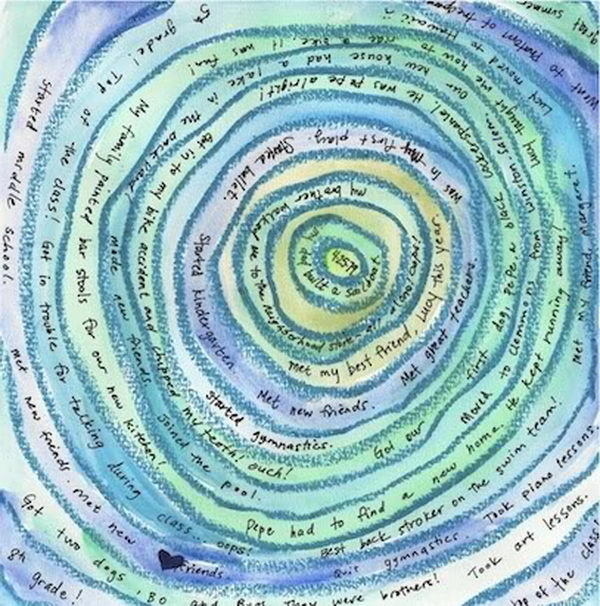 4.25.79
my dad built a sailboat
my brother walked me to the neighborhood store
Met my best friend, Lucy this year.
Started ballet.
was in my first play.
Started Kindergarten.
Met new friends.
Met great teachers.
Started gymnastics.
Got in to my bike accident and chipped my teeth! Ouch!
Got our first dog, pepe, a black cockerspaniel! He was pepe alright!
made new friends.
Joined the pool.
Moved to Clemmons from Winston-Salem. Our new house had a lake in the backyard!
My family painted bar stools for our new kitchen!
Pepe had to find a new home. He kept running away!
Lucy taught me how to ride a bike! It was fun!
Top of the class! Got in trouble for talking during class... oops!
Best back stroker on the swim team!
Lucy moved to Hawaii
5th grade!
Started middle school.
Met new friends. Met new friends.
Quit gymnastics. Took piano lessons.
Met my friend, Margaret
Went to Phantom of the
summer
8th grade!
Got two dogs, 'Bo and Bear. They were brothers!
Took art lessons.
top of the class!